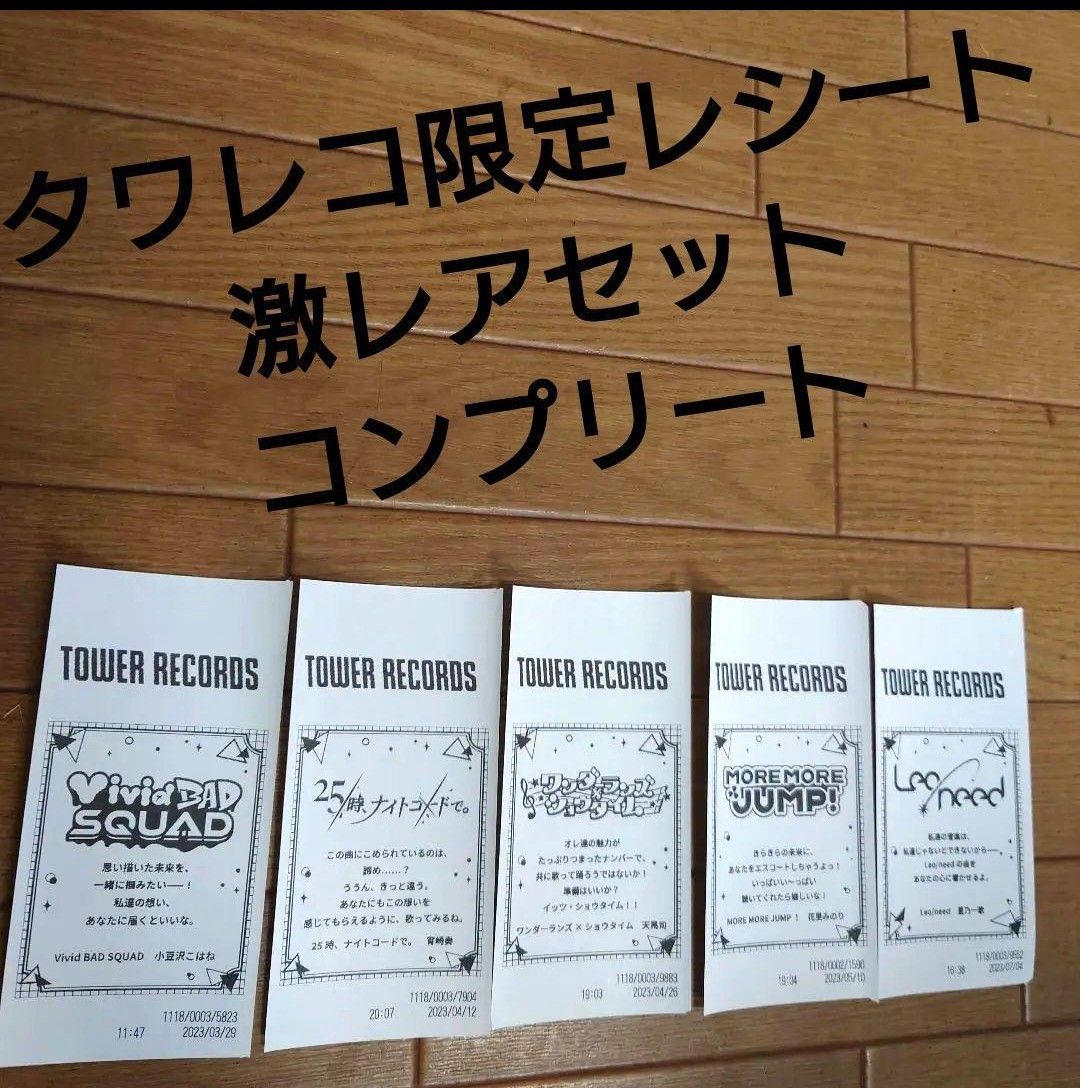 タワレコ限定レシート
激レアセット
コンプリート
TOWER RECORDS
Vivid BAD
SQUAD
思い描いた未来を、
一緒に掴みたい──！
私達の想い、
あなたに届くといいな。
Vivid BAD SQUAD 小豆沢こはね
1118/0003/5823
11:47 2023/03/29
TOWER RECORDS
25時、ナイトコードで。
この曲にこめられているのは、
諦め……？
ううん、きっと違う。
あなたにもこの想いを
感じてもらえるように、歌ってみるね。
25時、ナイトコードで。 宵崎奏
1118/0003/7904
20:07 2023/04/12
TOWER RECORDS
ワンダーランズ
ショウタイム
オレ達の魅力が
たっぷりつまったナンバーで、
共に歌って踊ろうではないか！
準備はいいか？
イッツ・ショウタイム！！
ワンダーランズ×ショウタイム 天馬司
1118/0003/9883
19:03 2023/04/26
TOWER RECORDS
MORE MORE
JUMP!
きらきらの未来に、
あなたをエスコートしちゃうよっ！
いっぱいい〜っぱい
聴いてくれたら嬉しいな！
MORE MORE JUMP！ 花里みのり
1118/0002/1590
19:34 2023/05/10
TOWER RECORDS
Leo/need
私達の音楽は、
私達じゃないとできないから──。
Leo/needの曲を
あなたの心に響かせるよ。
Leo/need 星乃一歌
1118/0003/9552
16:38